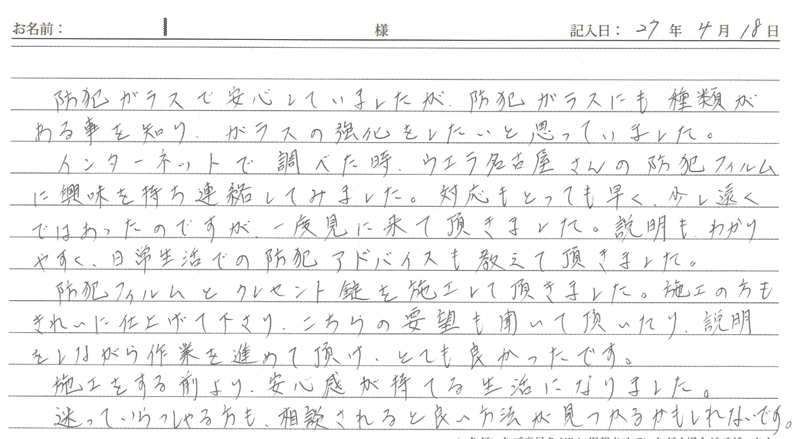 お名前： 様 記入日： 27 年 4 月 18 日
防犯ガラスで安心していましたが、防犯ガラスにも種類が
ある事を知り、ガラスの強化をしたいと思っていました。
インターネットで調べた時、ウエラ名古屋さんの防犯フィルム
に興味を持ち連絡してみました。対応もとっても早く、少し遠く
ではあったのですが、一度見に来て頂きました。説明も、わかり
やすく、日常生活での防犯アドバイスも教えて頂きました。
防犯フィルムとクレセント錠を施工して頂きました。施工の方も
きれいに仕上げて下さり、こちらの要望も聞いて頂いたり、説明
をしながら作業を進めて頂け、とても良かったです。
施工をする前より、安心感が持てる生活になりました。
迷っていらっしゃる方も、相談されると良い方法が見つかるかもしれないです。